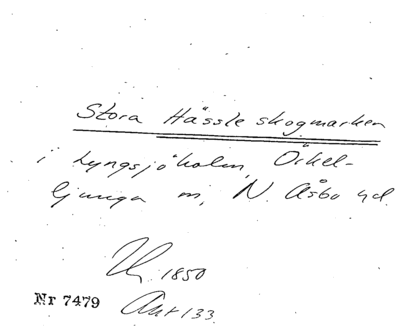 Stora Hässleskogmarken
i Lyngsjöholm, Örkel-
ljunga m, N. Åsbo hd.
1850
Nr 7479 Akt 133